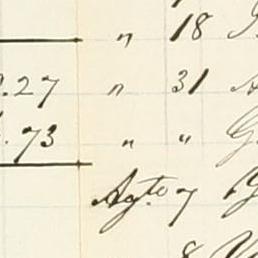 " 18
.27 " 31
.73 " " G
Agto 7
8